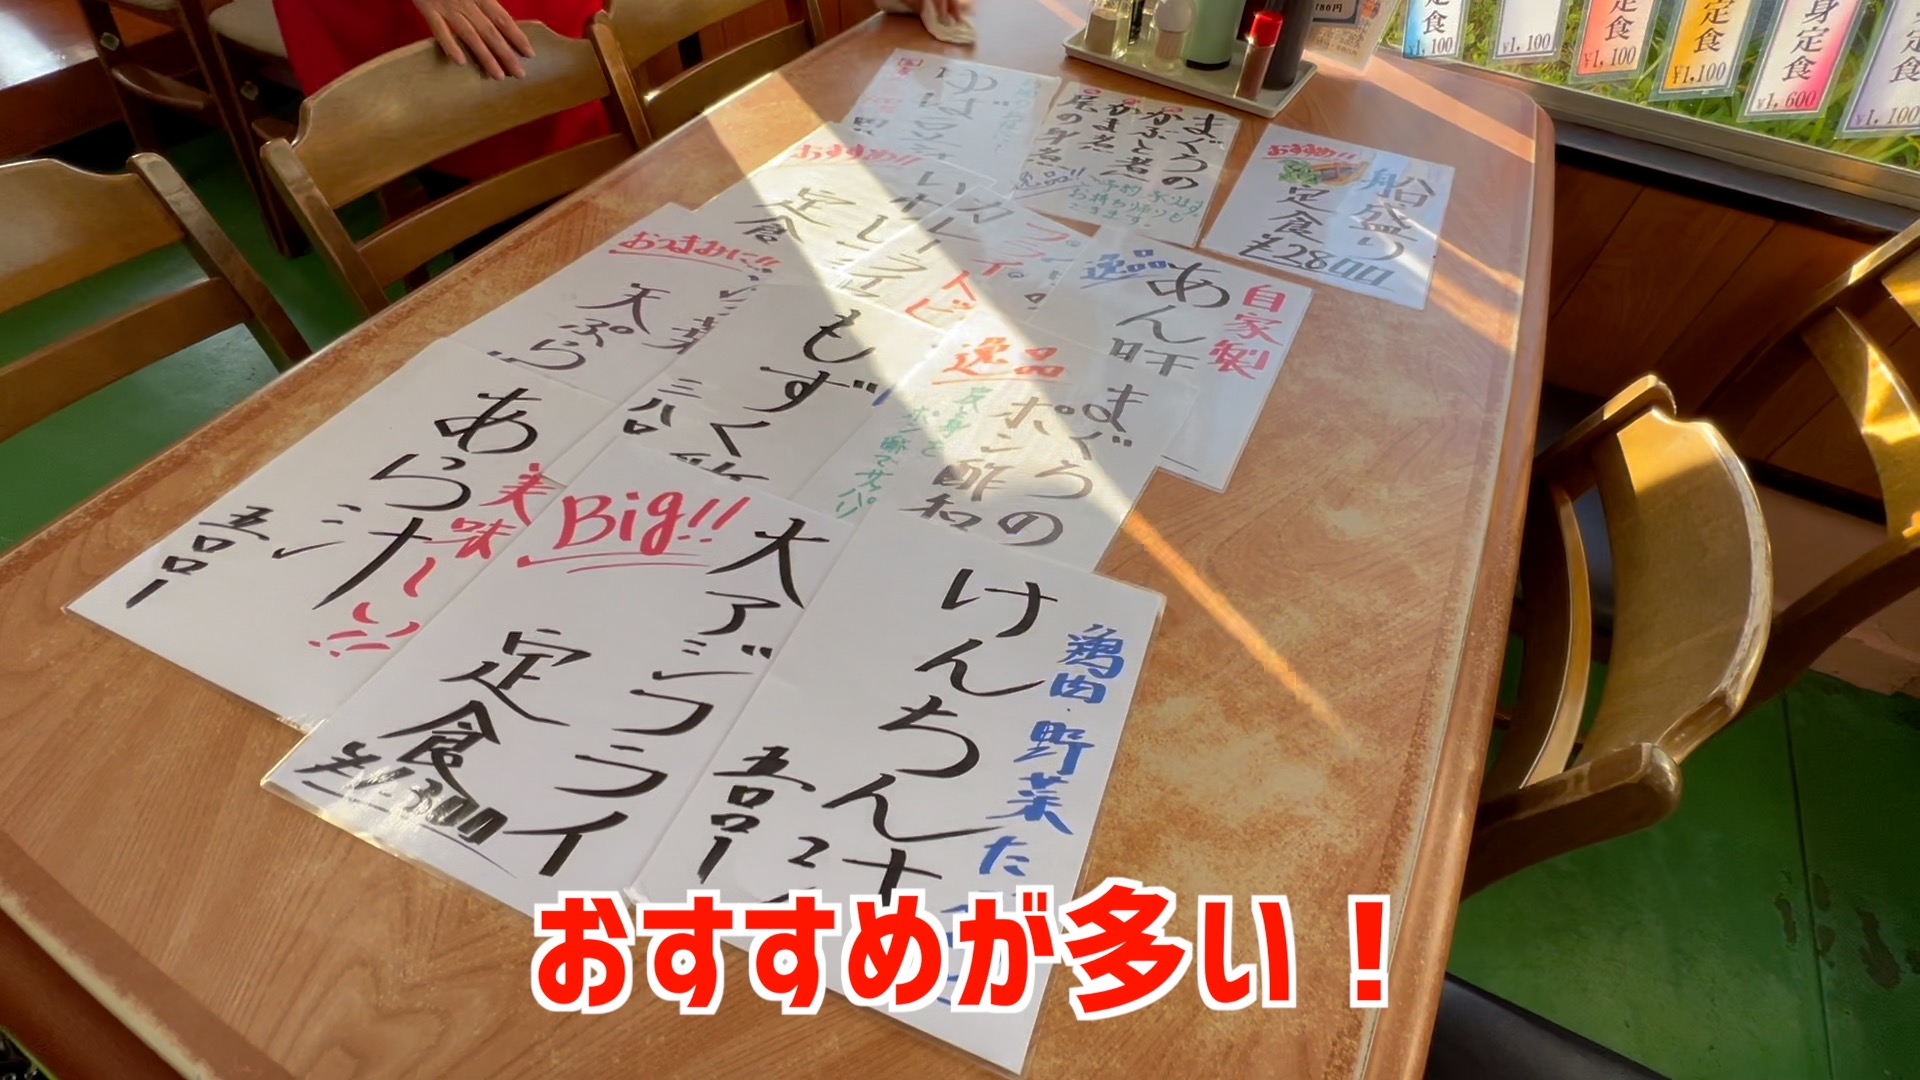 定食
¥1,100
¥1,100
定食
¥1,100
定食
¥1,100
身定食
¥1,600
定食
¥1,100
まぐろの
かぶと煮
かま煮
尾の身煮
逸品!!
おすすめ!!
船盛り
定食
¥2800
おすすめ!!
定食
フライ
自家製
あん肝
逸品
おつまみに!!
天ぷら
三八〇
もずく酢
逸品
まぐろの
ポン酢和
ポン酢でサッパリ
あら汁
美味しい!!
五〇〇ー
Big!!
大アジフライ
定食
¥1,300
けんちん汁
鶏肉・野菜た
五〇〇ー
おすすめが多い！